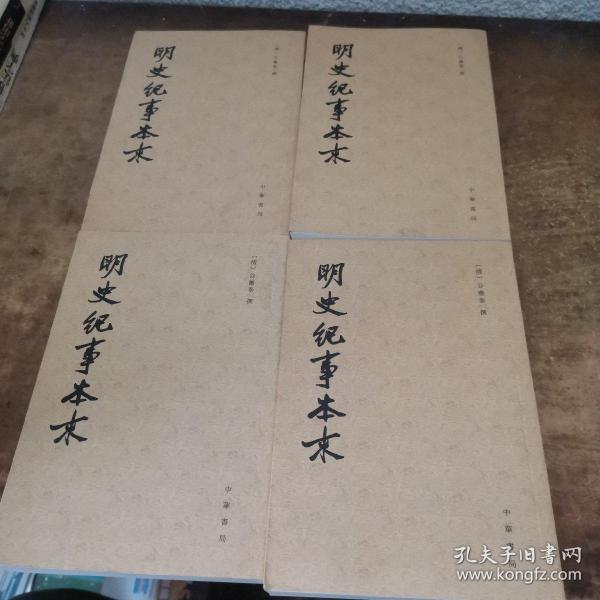 明史紀事本末
中華書局
明史紀事本末
中華書局
明史紀事本末
〔清〕谷應泰 撰
中華書局
明史紀事本末
〔清〕谷應泰 撰
中華書局
孔夫子旧书网
www.kongfz.com